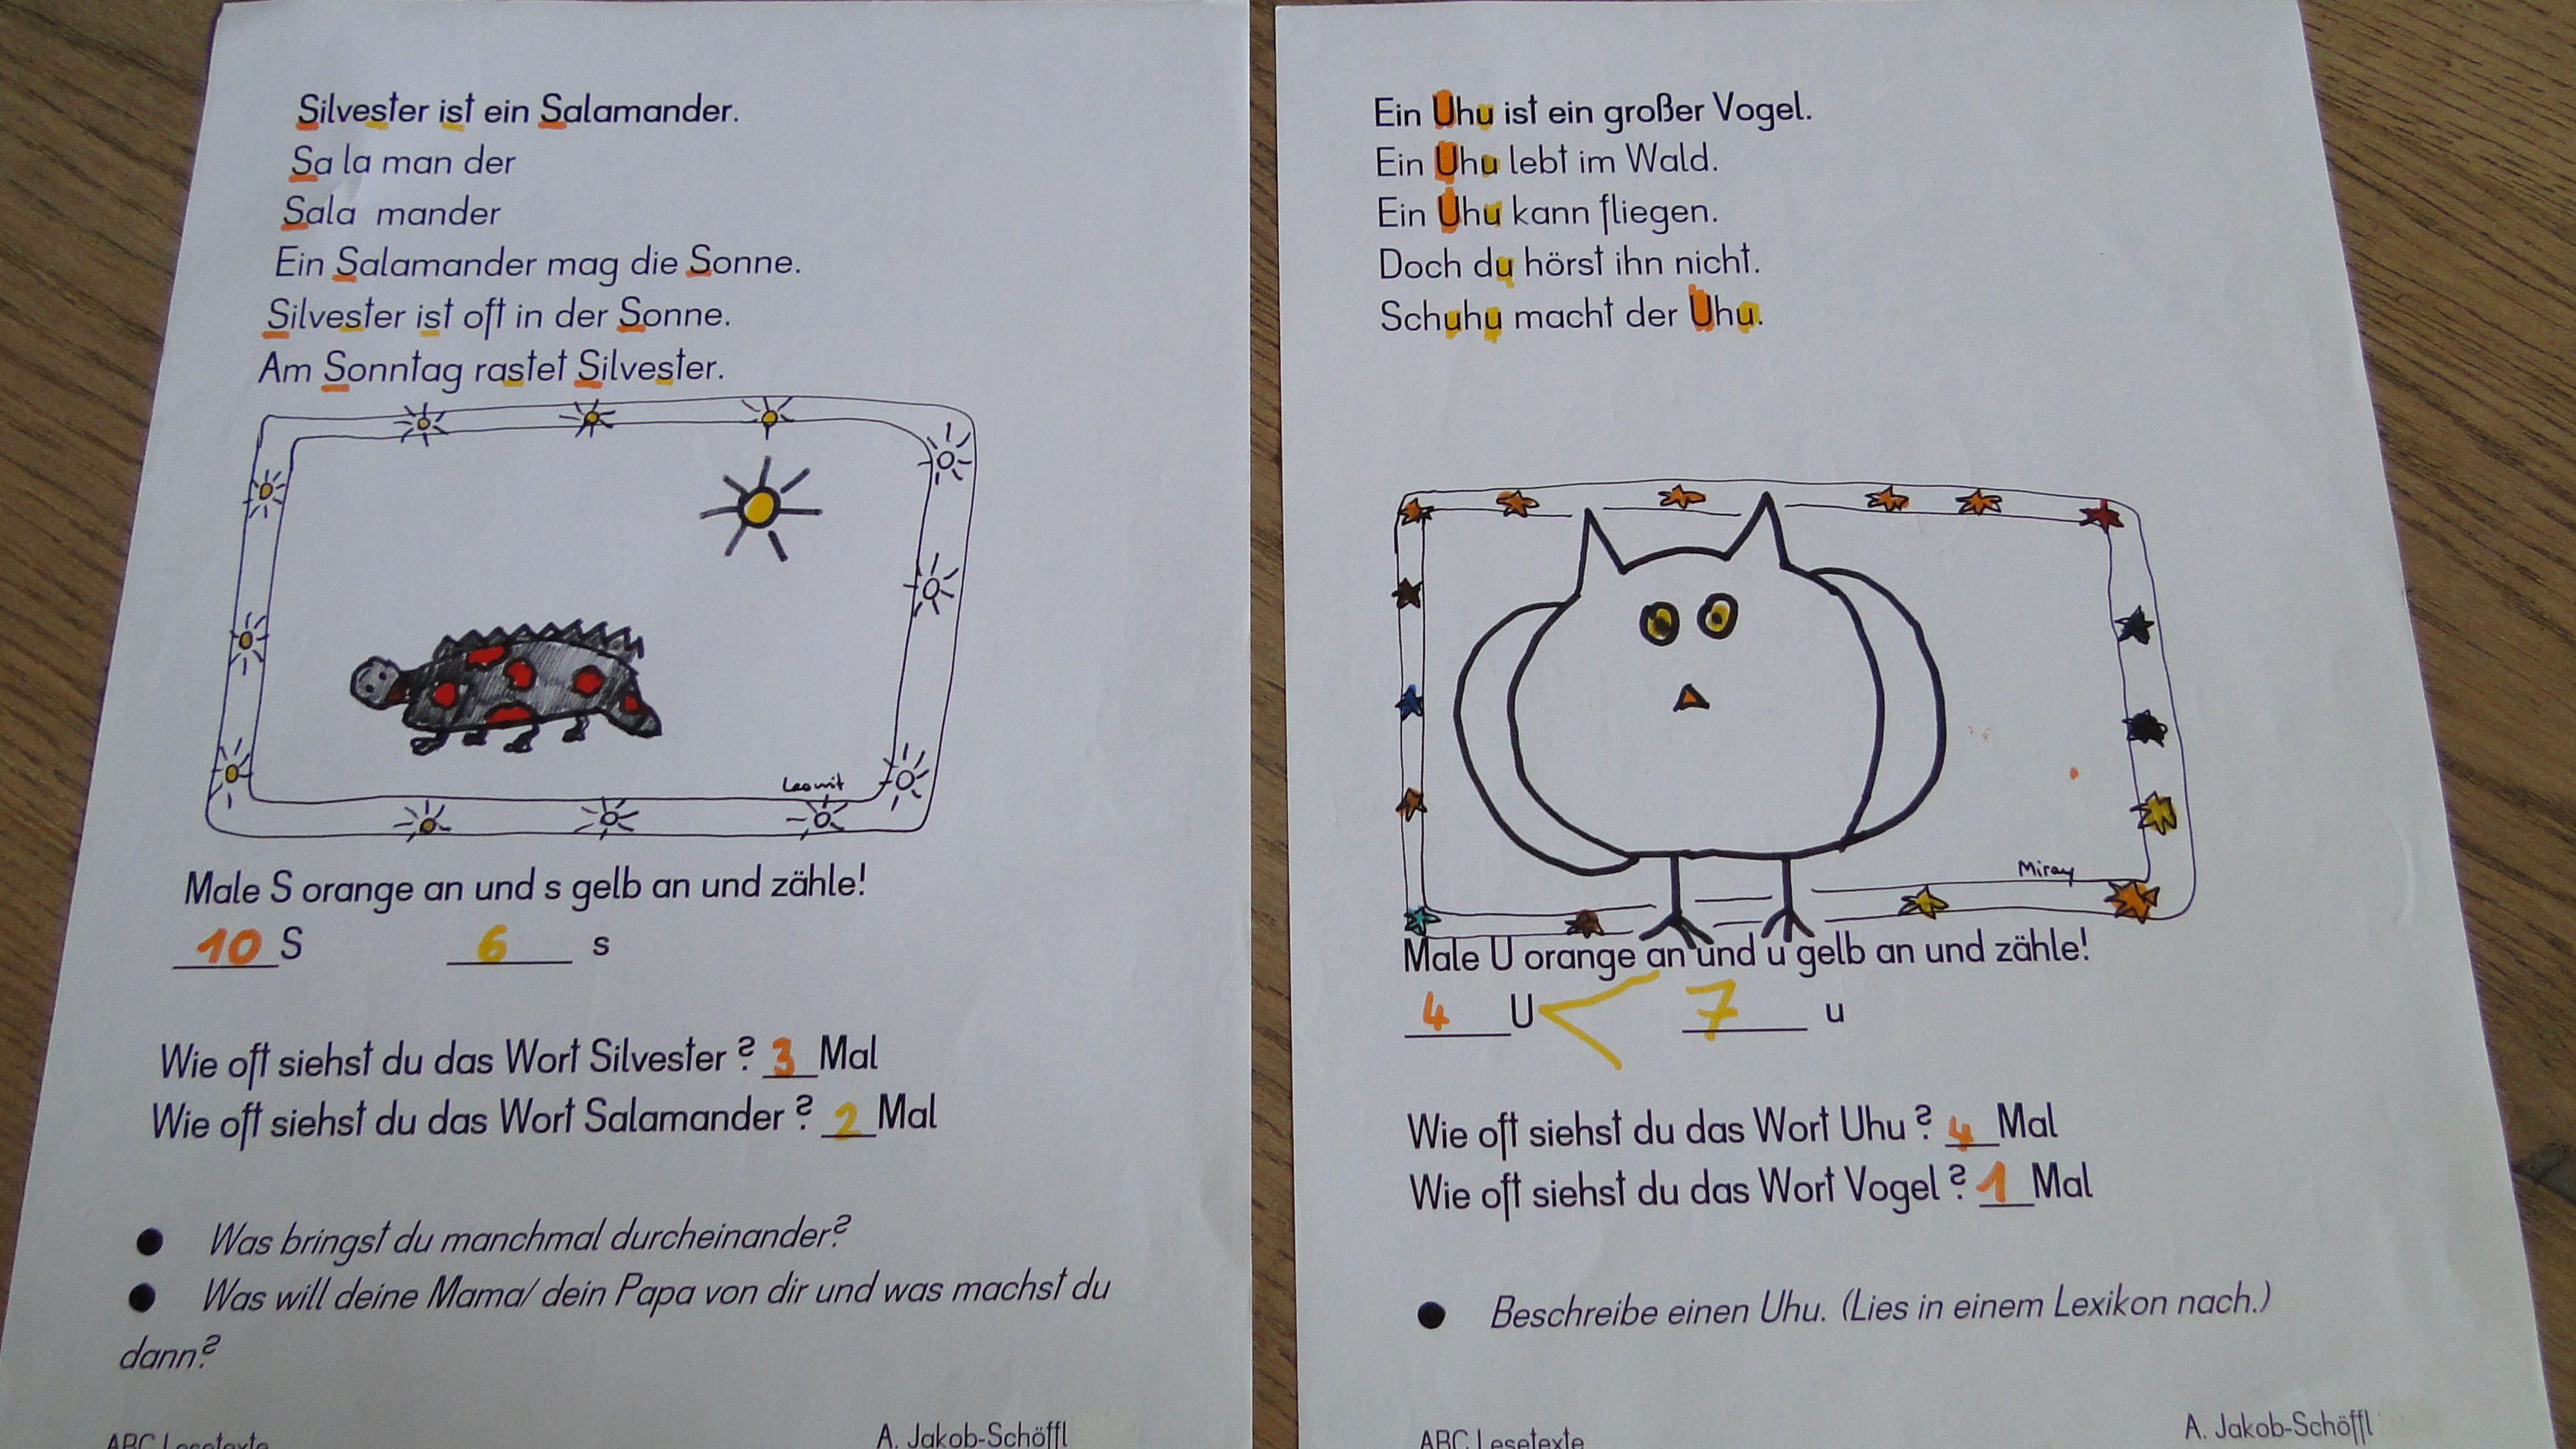 Silvester ist ein Salamander.
Sa la man der
Sala mander
Ein Salamander mag die Sonne.
Silvester ist oft in der Sonne.
Am Sonntag rastet Silvester.
Male S orange an und s gelb an und zähle!
10 S 6 s
Wie oft siehst du das Wort Silvester ? 3 Mal
Wie oft siehst du das Wort Salamander ? 2 Mal
● Was bringst du manchmal durcheinander?
● Was will deine Mama/ dein Papa von dir und was machst du
dann?
ABC Lesetexte A. Jakob-Schöffl
Ein Uhu ist ein großer Vogel.
Ein Uhu lebt im Wald.
Ein Uhu kann fliegen.
Doch du hörst ihn nicht.
Schuhu macht der Uhu.
Miray
Male U orange an und u gelb an und zähle!
4 U < 7 u
Wie oft siehst du das Wort Uhu ? 4 Mal
Wie oft siehst du das Wort Vogel ? 1 Mal
● Beschreibe einen Uhu. (Lies in einem Lexikon nach.)
ABC Lesetexte A. Jakob-Schöffl